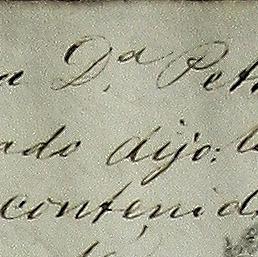 D.ª Pet
ado dijo: l
contenid